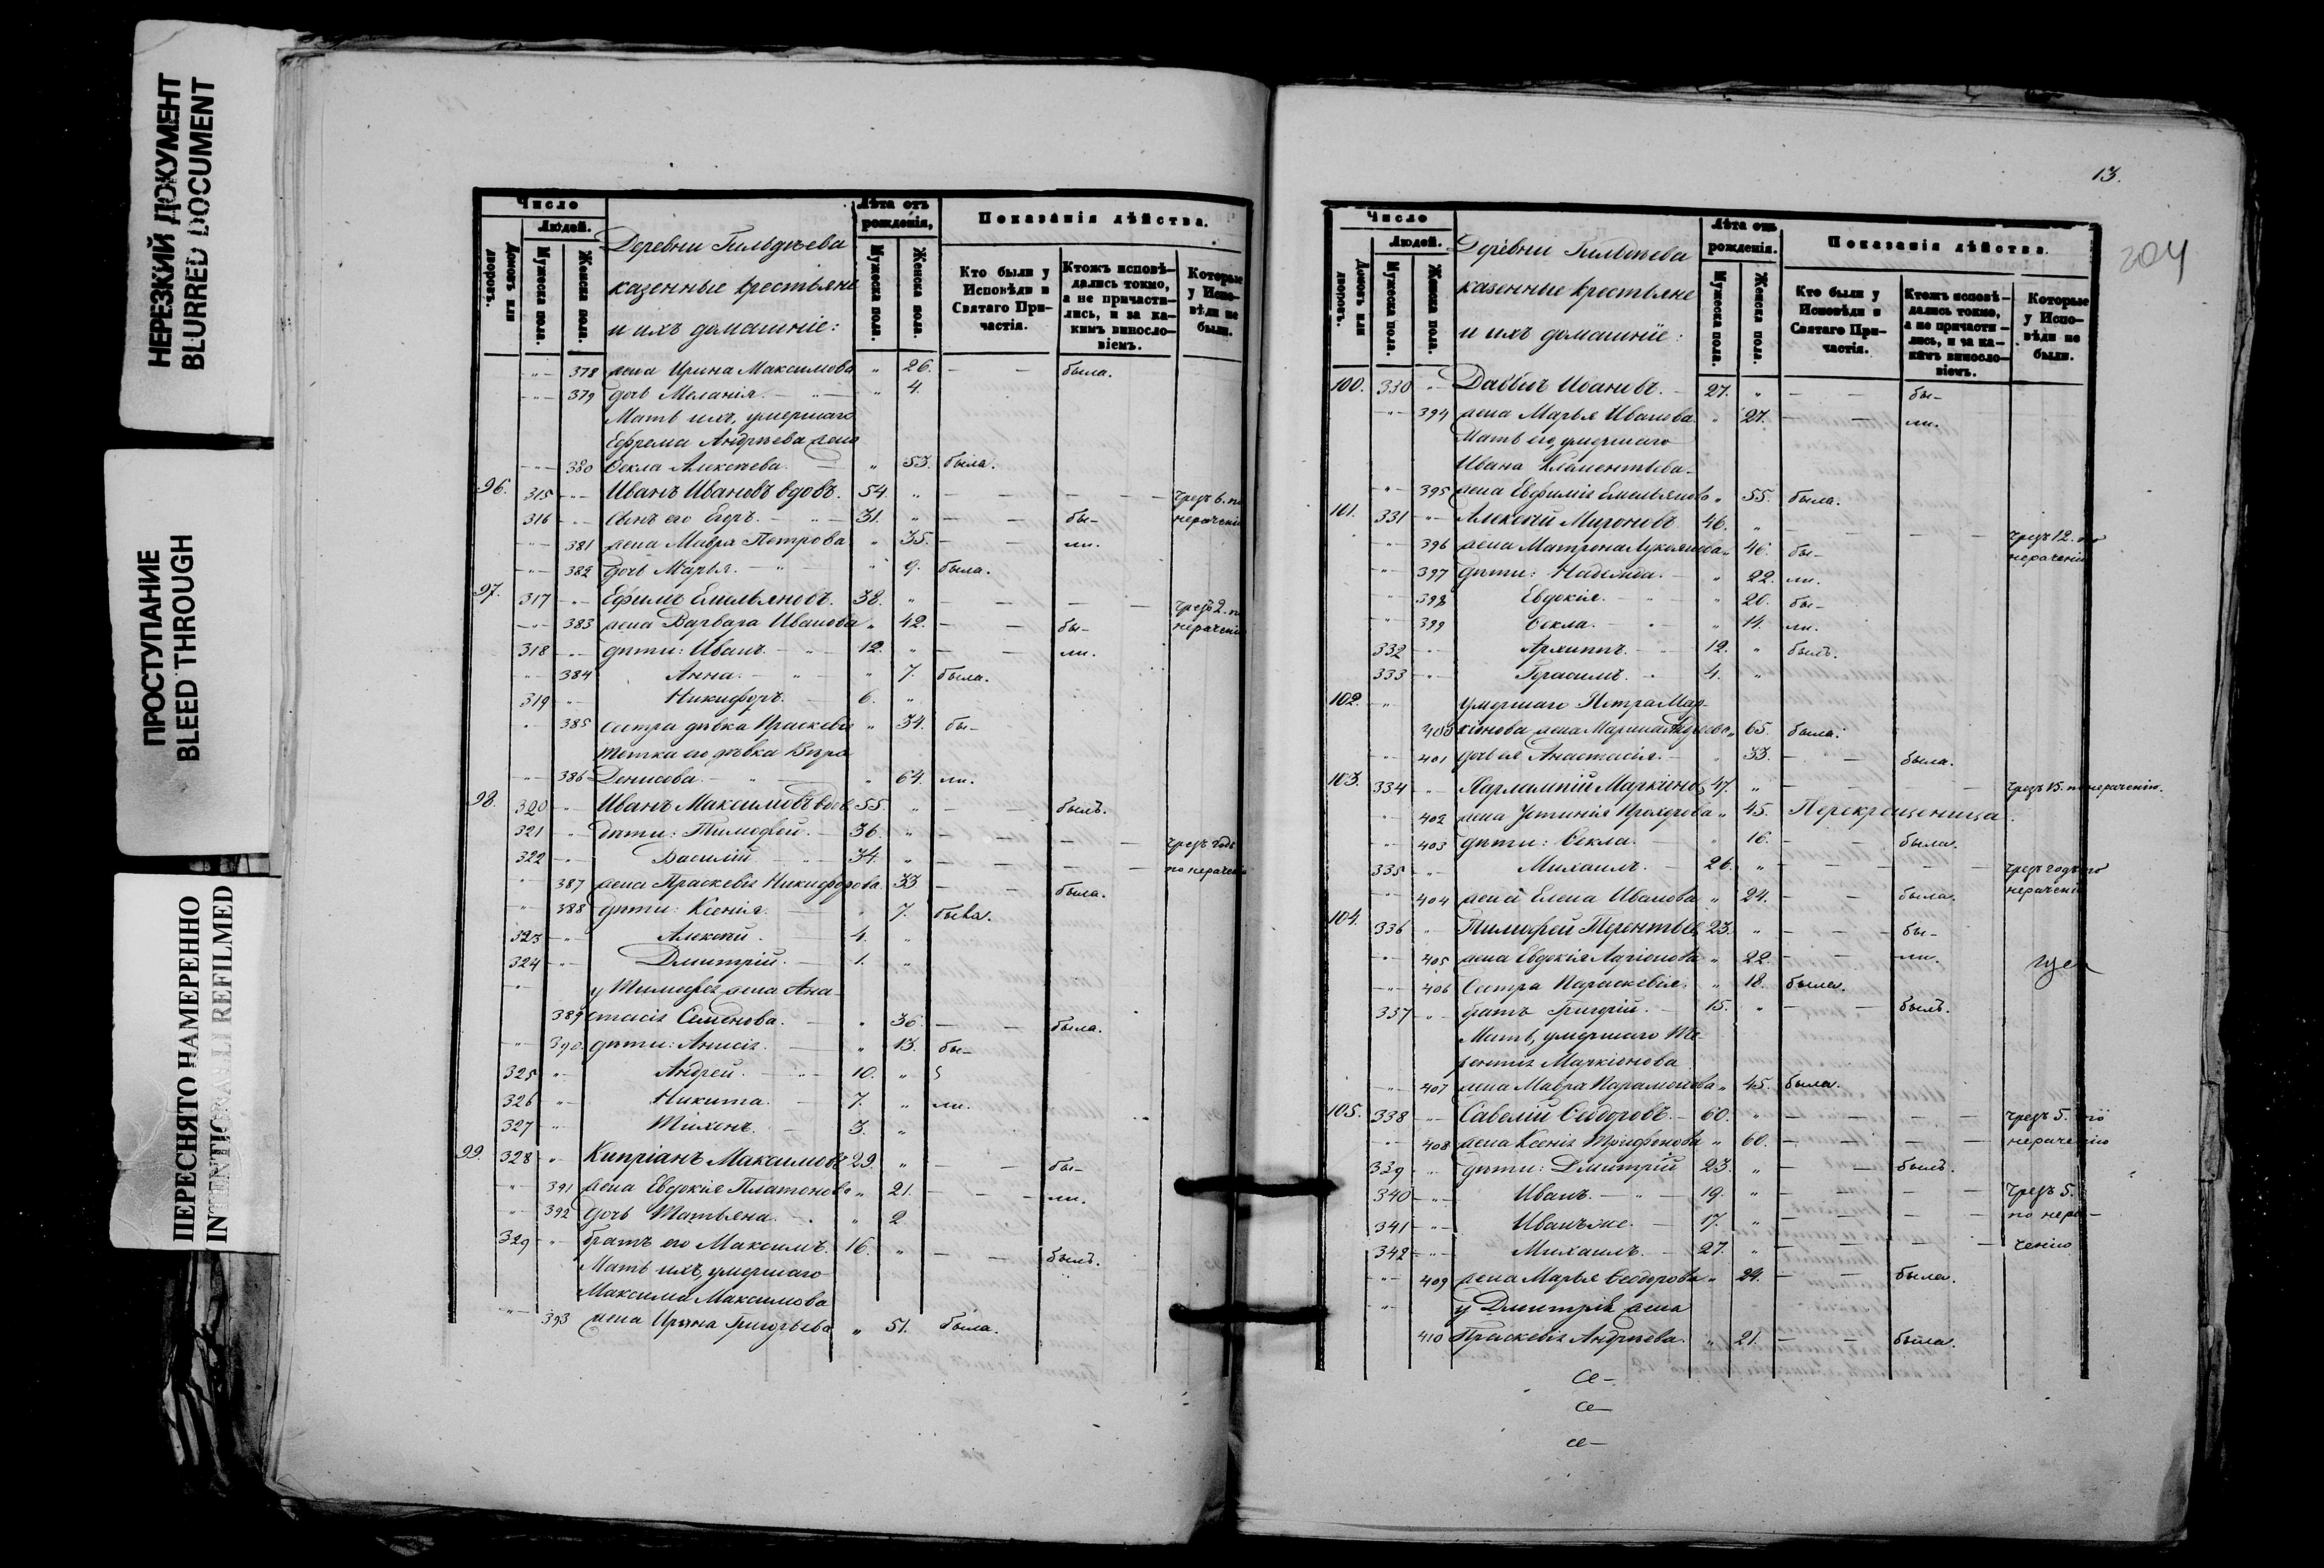 НЕРЕЗКИЙ ДОКУМЕНТ
BLURRED DOCUMENT
ПРОСТУПАНИЕ
BLEED THROUGH
ПЕРЕСНЯТО НАМЕРЕННО
INTENTIONALLY REFILMED
Число
Людей.
Домовъ или дворовъ.
Мужеска пола.
Женска пола.
Деревни Гильдѣева
казенные крестьяне
и ихъ домашніе:
Лѣта отъ рожденія,
Мужеска пола.
Женска пола.
Показанія дѣйства.
Кто были у Исповѣди и Святаго При-
частія.
Ктожъ исповѣ-
дались токмо,
а не причасти-
лись, и за ка-
кимъ винословіемъ.
Которые
у Испо-
вѣди не
были.
378 жена Ирина Максимова " 26. — — была.
379 дочь Меланія. " 4.
Мать ихъ, умершаго
Ефрема Андрѣева жена
380 Ѳекла Алексѣева. " 53. была.
96. 315 Иванъ Ивановъ вдовъ. 54. " — — — — чрезъ 6. по
316 Сынъ его Егоръ. 31. " — — бы- нераченію
381 жена Мавра Петрова " 35. — — ли.
382 дочь Марья. " 9. была.
97. 317 Ефимъ Емельяновъ. 38. " — — — — чрезъ 2. по
383 жена Варвара Иванова " 42. — — бы- нераченію
318 дѣти: Иванъ. 12. " — — ли.
384 Анна. " 7. была.
319 Никифоръ. 6. "
385 сестра дѣвка Праскевія " 34. бы-
тетка его дѣвка Вѣра
386 Денисова. " 64. ли.
98. 320 Иванъ Максимовъ вдов. 55. " — — былъ.
321 дѣти: Тимофей. 36. " — — — — чрезъ годъ
322 Василій 34. " — — — — по нерачен
387 жена Праскевія Никифорова. 33 — — была.
388 дѣти: Ксенія. " 7. была.
323 Алексѣй. 4. "
324 Дмитрій. 1. "
у Тимофея жена Ана-
389 стасія Семенова. " 36. — — была.
390. дѣти: Анисія. " 13. бы-
325 Андрей. 10. "
326 Никита. 7. " ли.
327 Тихонъ. 3. "
99. 328 Кипріанъ Максимовъ 29. " — — бы-
391 жена Евдокія Платонова " 21. — — ли.
392 дочь Татьяна. " 2
329 братъ его Максимъ. 16. " — — былъ.
Мать ихъ, умершаго
Максима Максимова
393 жена Ирина Григорьева " 51. была.
13.
204
Число
Людей.
Домовъ или дворовъ.
Мужеска пола.
Женска пола.
Деревни Гильдѣева
казенные крестьяне
и ихъ домашніе:
Лѣта отъ рожденія.
Мужеска пола.
Женска пола.
Показанія дѣйства.
Кто были у Исповѣди и Святаго При-
частія.
Ктожъ исповѣ-
дались токмо,
а не причасти-
лись, и за ка-
кимъ винословіемъ.
Которые
у Испо-
вѣди не
были.
100. 330 Давыдъ Ивановъ. 27. " — — бы-
394 жена Марья Иванова. " 27. — — ли.
Мать его, умершаго
Ивана Клементьева
395 жена Евфимія Емельянова " 55. была.
101. 331 Алексѣй Мироновъ. 46. " — — — — чрезъ 12. по
396 жена Матрона Лукоянова " 46. бы- нераченію
397 дѣти: Надежда. " 22. ли.
398 Евдокія. " 20. бы-
399 Ѳекла. " 14. ли.
332 Архиппъ. 12. " былъ.
333 Герасимъ. 4. "
102. умершаго Петра Мар-
400 кіонова жена Марина Андреева " 65. была.
401 дочь ея Анастасія. " 33. — — была.
103. 334 Харлампій Маркіоновъ 47. " — — — — чрезъ 15. по нераченію.
402 жена Устинія Прохорова " 45. Перекрещеница.
403 дѣти: Ѳекла. " 16. — — была.
335 Михаилъ. 26. " — — — — чрезъ годъ по
404 жена Елена Иванова " 24. — — была. нераченію
104. 336 Тимофей Терентьев. 23. " — — бы-
405 жена Евдокія Ларіонова " 22. — — ли.
406 Сестра Параскевія. " 18. была.
337 братъ Григорій. 15. " — — былъ.
Мать, умершаго Те-
рентія Маркіонова
407 жена Мавра Парамонова " 45. была.
105. 338 Савелій Сидоровъ. 60. " — — — — чрезъ 5. по
408 жена Ксенія Трифонова " 60. — — — — нераченію
339 дѣти: Дмитрій 23. " — — былъ.
340 Иванъ. 19. " — — — — чрезъ 5.
341 Иванъ же. 17. " — — — — по нера-
342 Михаилъ. 27. " — — — — ченію
409 жена Марья Ѳеодорова " 24. — — была.
у Дмитрія жена
410 Праскевія Андрѣева. " 21. — — была.
Се-
се-
се-